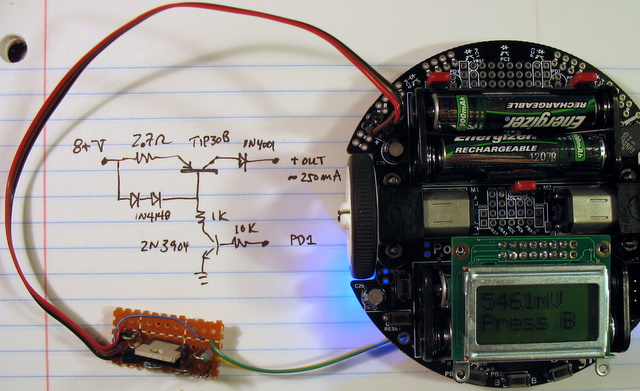 8+V 2.7Ω TIP30B 1N4001
+OUT
≈250MA
1N4148
1K
2N3904 10K PD1
Energizer
RECHARGEABLE
Energizer
RECHARGEABLE
1207B
M1 M2
5461mV
Press B
B